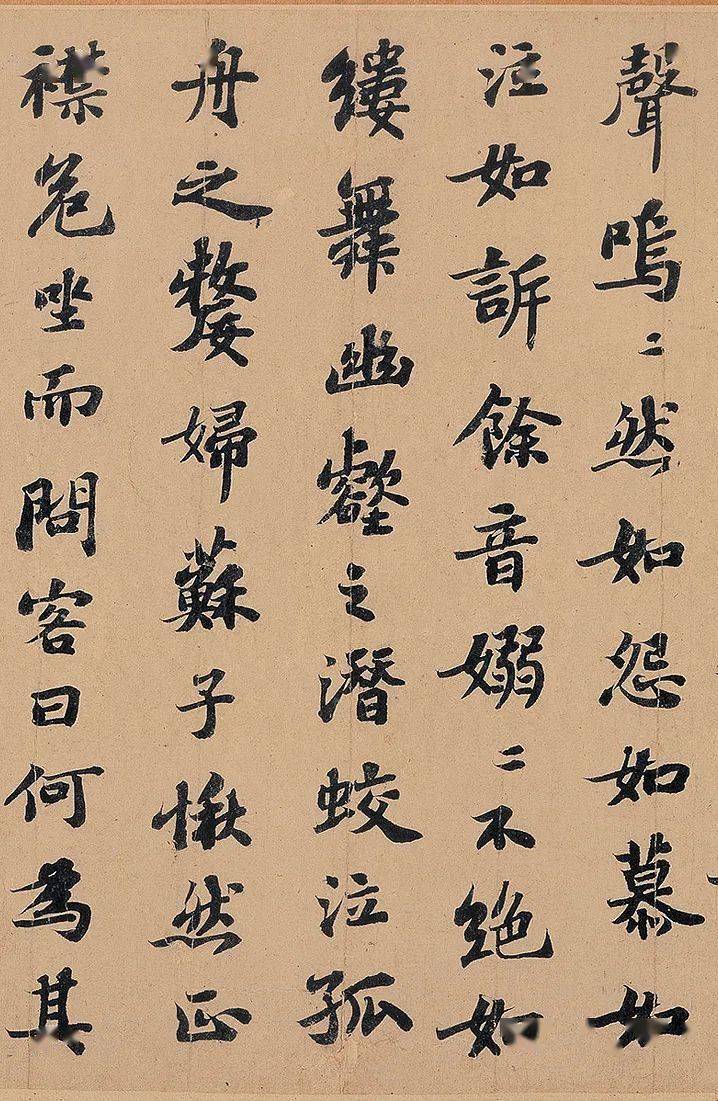 聲嗚〻然如怨如慕如
泣如訴餘音嫋〻不絕如
縷舞幽壑之潛蛟泣孤
舟之嫠婦蘇子愀然正
襟危坐而問客曰何為其